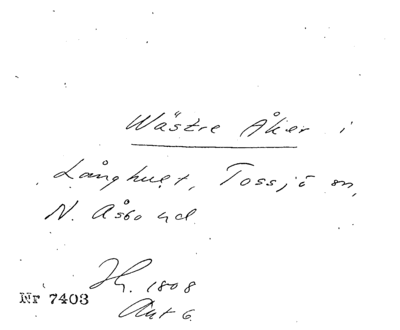 Wästre Åker i
Långhult, Tossjö sn,
N. Åsbo hd
1808
Nr 7403
Akt 6